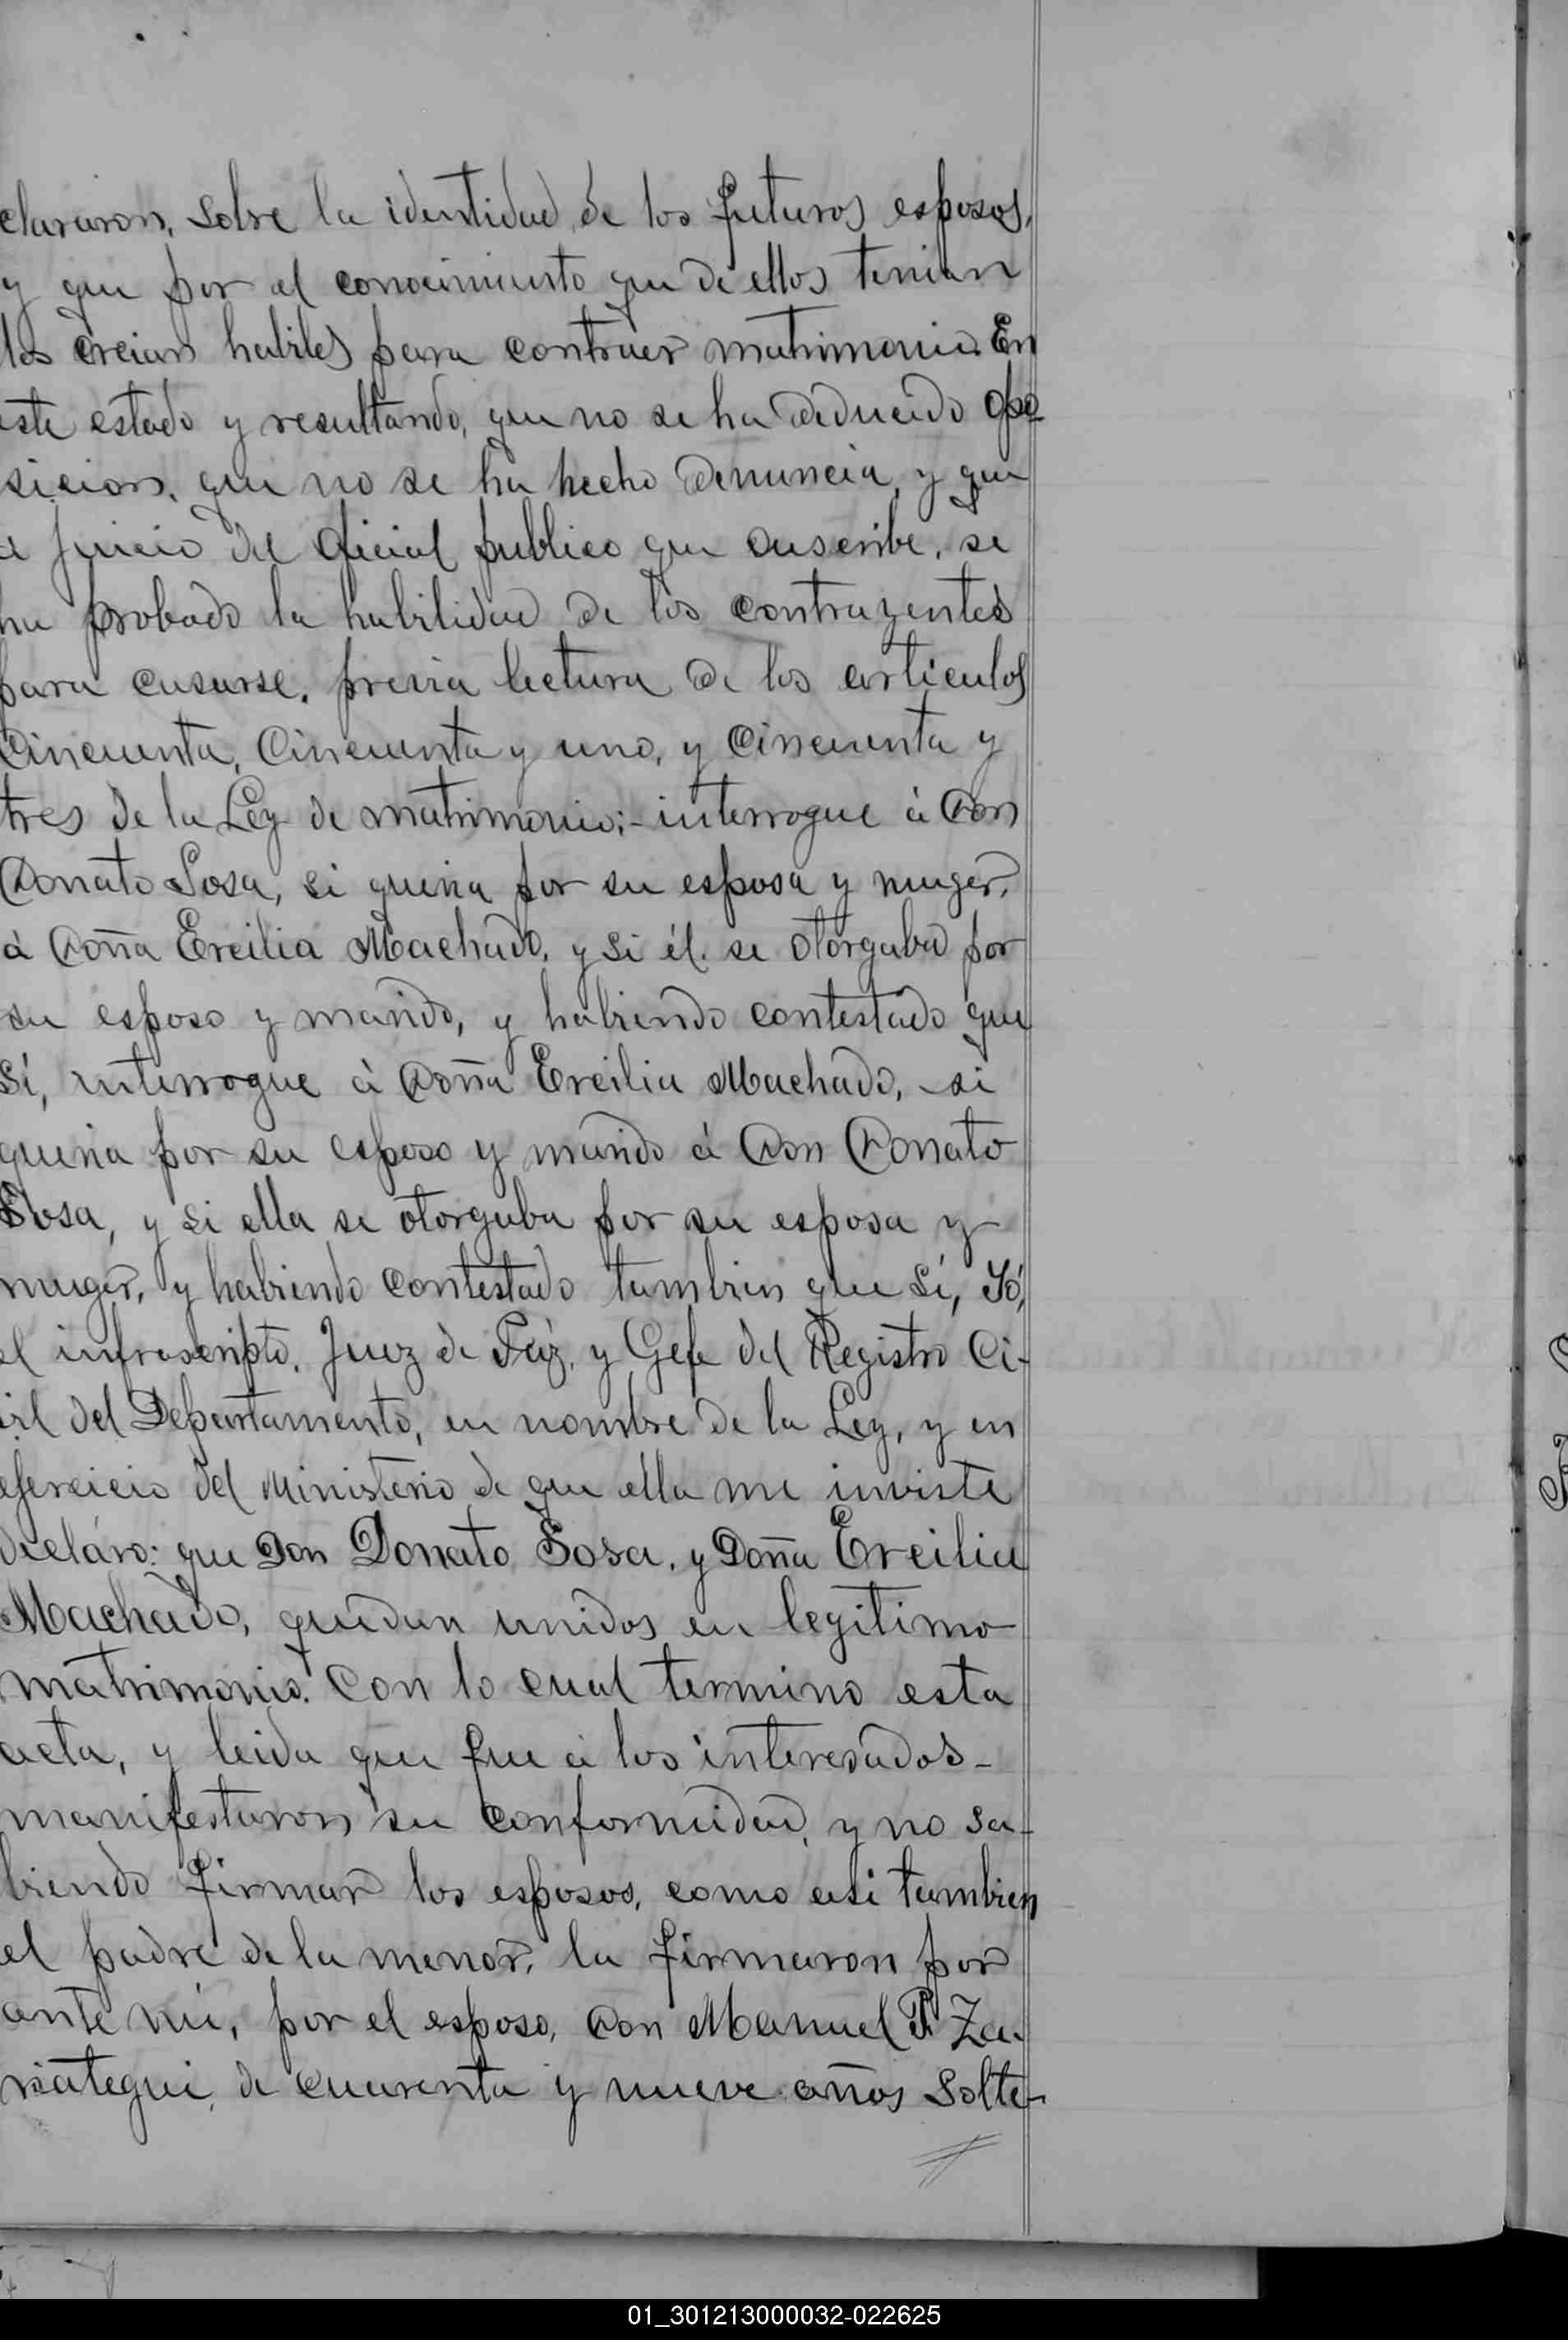 clararon, sobre la identidad de los futuros esposos,
y que por el conocimiento que de ellos tenian
los creian habiles para contraer matrimonio. En
este estado y resultando, que no se ha deducido opo-
sicion, que no se ha hecho denuncia, y que
a juicio del oficial publico que suscribe, se
ha probado la habilidad de los contrayentes
para casarse, previa lectura de los articulos
Cincuenta, Cincuenta y uno, y Cincuenta y
tres de la Ley de matrimonio;- interrogue á Don
Donato Sosa, si queria por su esposa y muger,
á Doña Ercilia Machado, y si él se otorgaba por
su esposo y marido, y habiendo contestado que
Sí, interrogue á Doña Ercilia Machado, si
queria por su esposo y marido á Don Donato
Sosa, y si ella se otorgaba por su esposa y
muger, y habiendo contestado tambien que Sí, Yó,
el infrascripto, Juez de Páz, y Gefe del Registro Ci-
vil del Departamento, en nombre de la Ley, y en
ejercicio del Ministerio de que ella me inviste
declaro: que Don Donato Sosa, y Doña Ercilia
Machado, quedan unidos en legitimo
matrimonio. Con lo cual termino esta
acta, y leida que fue á los interesados-
manifestaron su conformidad, y no sa-
biendo firmar los esposos, como asi tambien
el padre de la menor, la firmaron por
ante mi, por el esposo, Don Manuel P. Za-
riategui, de cuarenta y nueve años Solte-
01_301213000032-022625